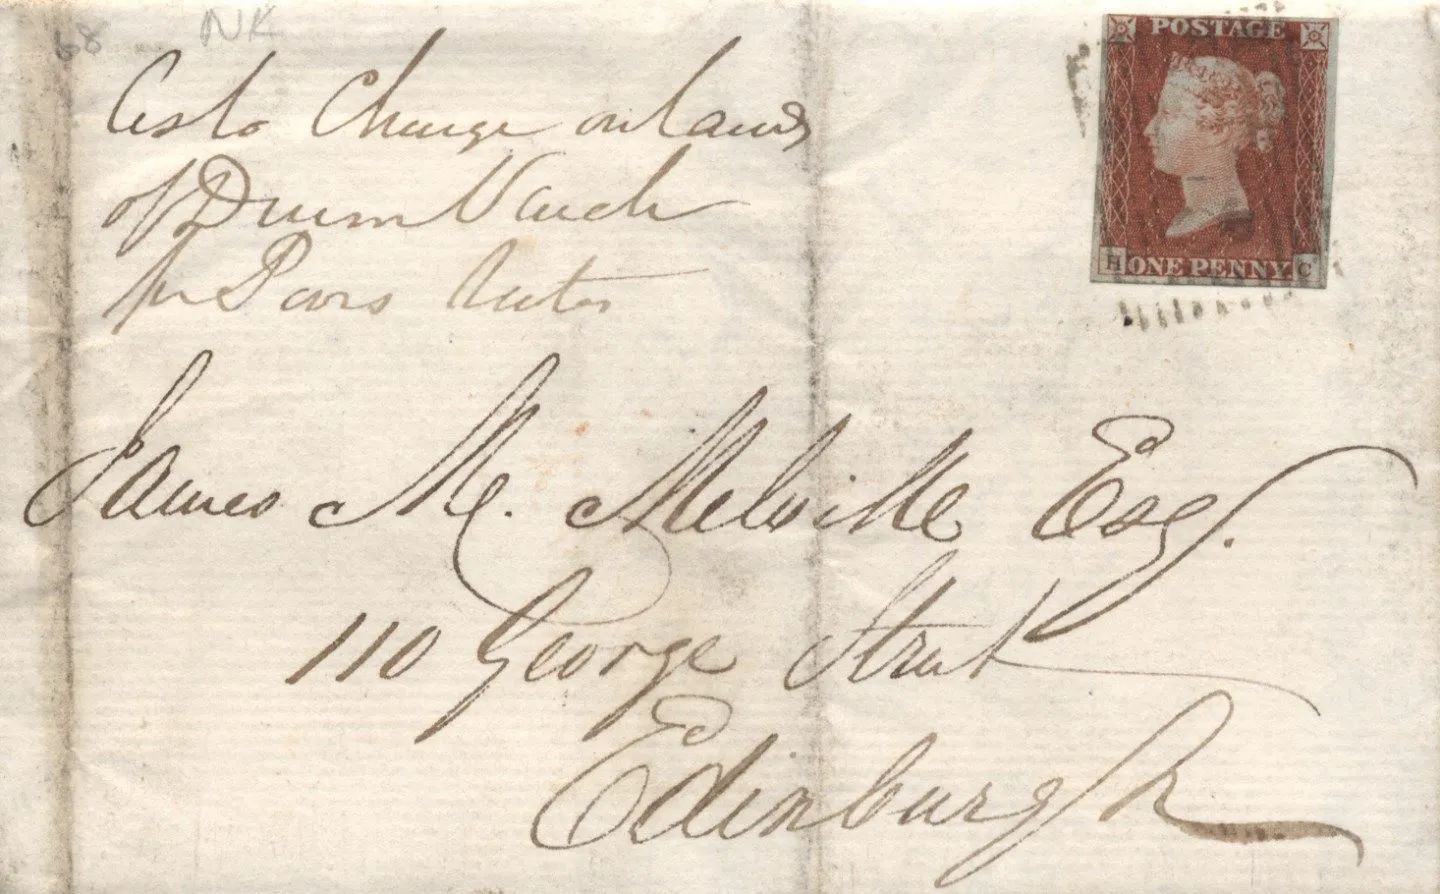 68 NK
As to Change on lands
of Drum Vauch
for Poors Rates
POSTAGE
H ONE PENNY C
James M. Melville Esq.
110 George Street
Edinburgh